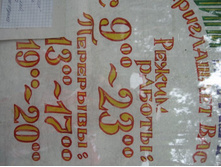 приглашает Вас
Режим
работы:
9⁰⁰ ~ 23⁰⁰
Перерывы:
13⁰⁰ ~ 17⁰⁰
19⁰⁰ ~ 20⁰⁰